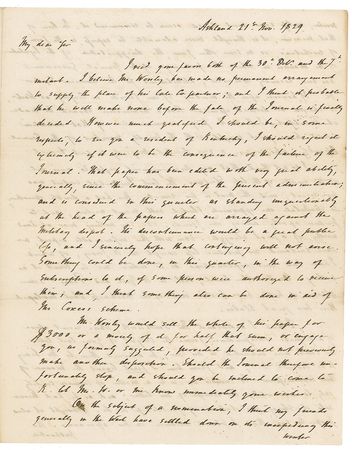 Ashland 21st Nov. 1829
My dear Sir
I recd. your favors both of the 30th Oct. and the 7th
instant. I believe Mr. Worsley has made no permanent arrangement
to supply the place of his late Co partner; and I think it probable
that he will make none before the fate of the Journal is finally
decided. However much gratified I should be, in some
respects, to see you a resident of Kentucky, I should regret it
extremely if it were to be the consequence of the failure of the
Journal. That paper has been edited with very great ability,
generally, since the commencement of the present administration;
and is considered in this quarter as standing unquestionably
at the head of the papers which are arrayed against the
Military despot. Its discontinuance would be a great public
loss, and I sincerely hope that contingency will not arise.
Something could be done, in this quarter, in the way of
subscriptions to it, if some person were authorized to receive
them; and I think something also can be done in aid of
Mr. scheme.
Mr. Worsley would sell the whole of his paper for
$3000 or a moiety of it for half that sum, or engage
you, as formerly suggested, provided he should not previously
make another disposition. Should the Journal therefore un-
fortunately stop, and should you be inclined to come to
K. let Mr. W. or me know immediately your wishes.
On the subject of a nomination, I think my friends
generally in the West have settled down on its inexpediency this
winter